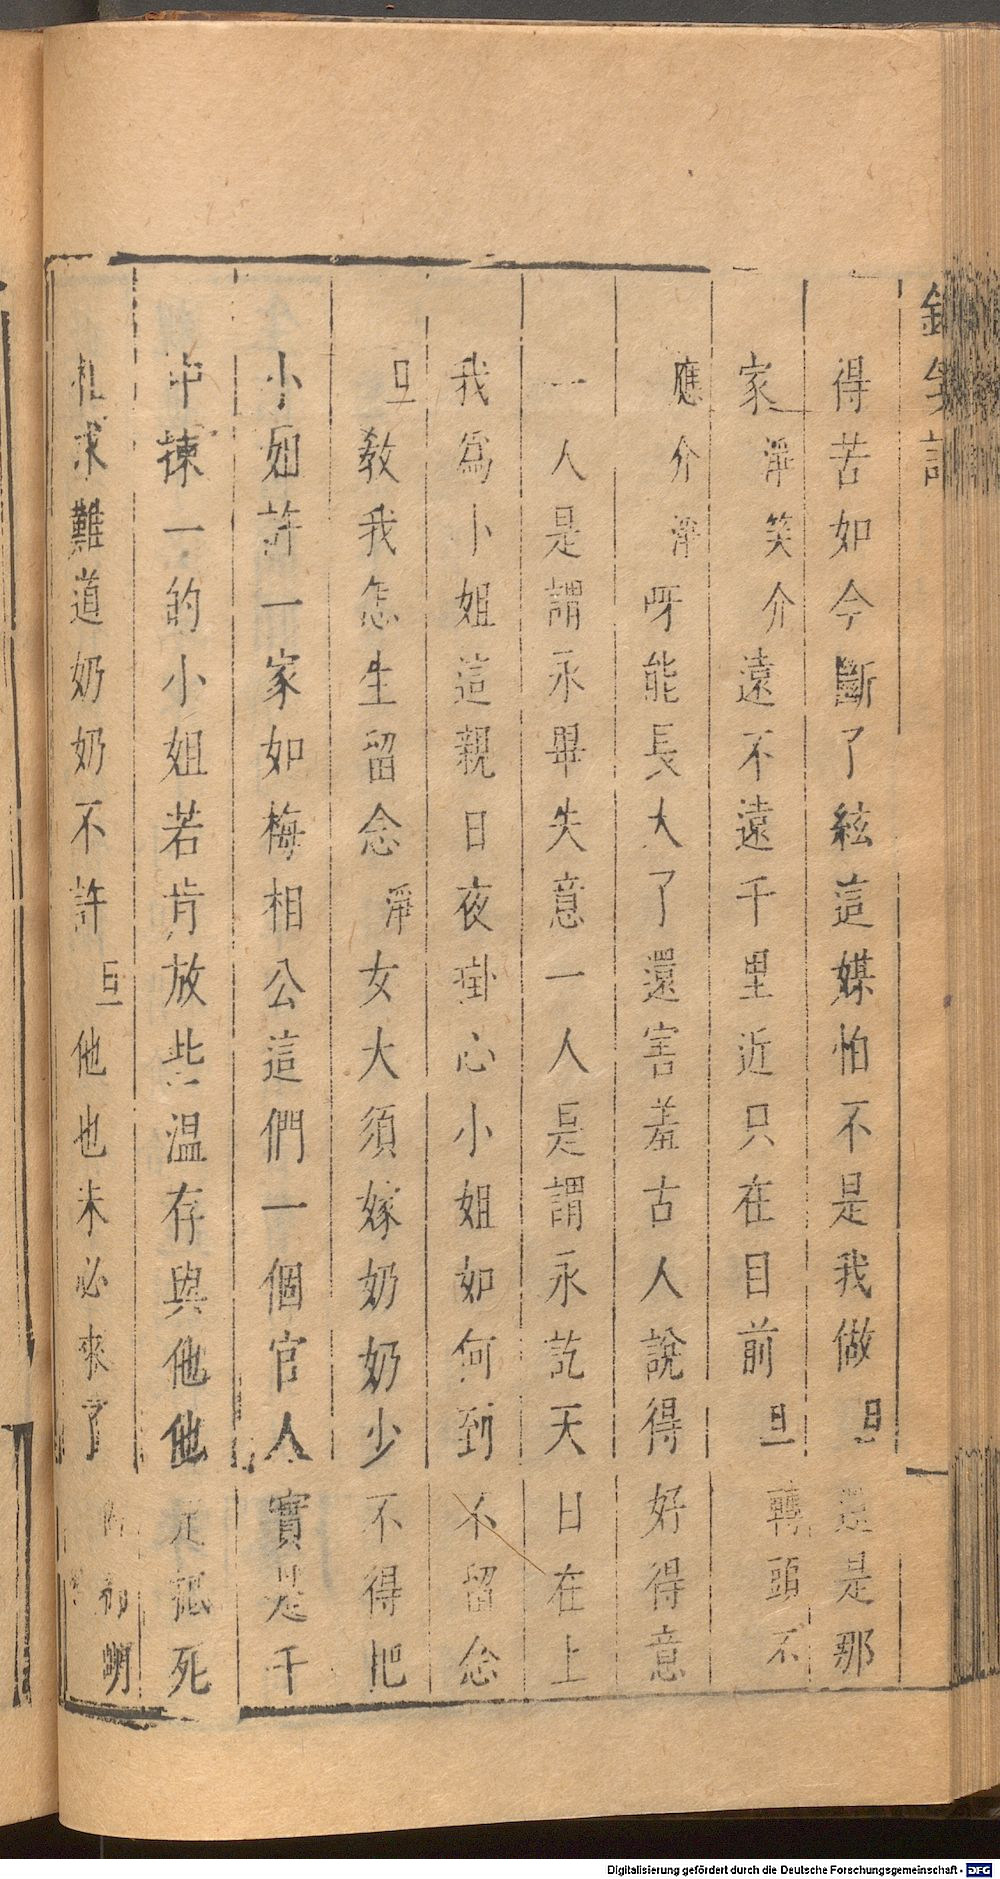 得苦如今斷了絃這媒怕不是我做旦還是那
家淨笑介遠不遠千里近只在目前旦轉頭不
應介淨呀能長大了還害羞古人說得好得意
一人是謂永畢失意一人是謂永訖天日在上
我爲小姐這親日夜掛心小姐如何到不留念
旦敎我怎生留念淨女大須嫁奶奶少不得把
小姐許一家如梅相公這們一個官人實是千
中揀一的小姐若肯放些温存與他他定抵死
相求難道奶奶不許旦他也未必來了
明
Digitalisierung gefördert durch die Deutsche Forschungsgemeinschaft - DFG